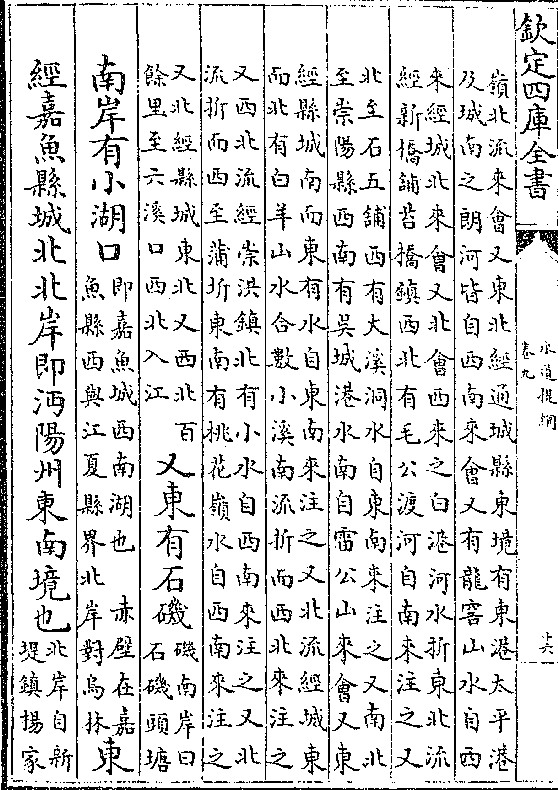 欽定四庫全書
水道提綱
卷九
十六
嶺北流來會又東北經通城縣東境有東港太平港
及城南之朗河皆自西南來會又有龍窖山水自西
來經城北來會又北會西來之白港河水折東北流
經新橋舖苔橋鎮西北有毛公渡河自南來注之又
北至石五舖西有大溪洞水自東南來注之又南北
至崇陽縣西南有吳城港水南自雷公山來會又東
經縣城南而東有水自東南來注之又北流經城東
而北有白羊山水合數小溪南流折而西北來注之
又西北流經崇洪鎮北有小水自西南來注之又北
流折而西至蒲圻東南有桃花嶺水自西南來注之
又北經縣城東北又西北百
餘里至六溪口西北入江
又東有石磯
磯南岸曰
石磯頭塘
南岸有小湖口
即嘉魚城西南湖也 赤壁在嘉
魚縣西與江夏縣界北岸對烏林
東
經嘉魚縣城北北岸即沔陽州東南境也
北岸自新
堤鎮揚家